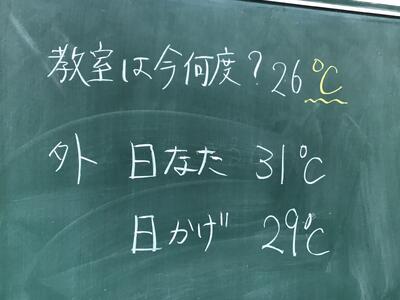 教室は今何度?26℃
外 日なた 31℃
日かげ 29℃